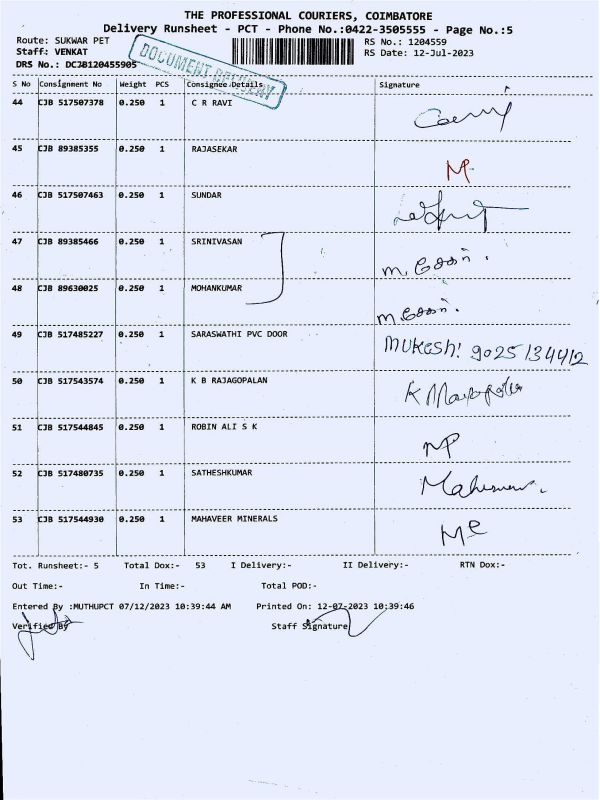 THE PROFESSIONAL COURIERS, COIMBATORE
Delivery Runsheet - PCT - Phone No.:0422-3505555 - Page No.:5
Route: SUKWAR PET RS No.: 1204559
Staff: VENKAT RS Date: 12-Jul-2023
DRS No.: DCJB120455905
DOCUMENT DELIVERY
S No Consignment No Weight PCS Consignee Details Signature
44 CJB 517507378 0.250 1 C R RAVI
45 CJB 89385355 0.250 1 RAJASEKAR M.
46 CJB 517507463 0.250 1 SUNDAR
47 CJB 89385466 0.250 1 SRINIVASAN
48 CJB 89630025 0.250 1 MOHANKUMAR
49 CJB 517485227 0.250 1 SARASWATHI PVC DOOR Mukesh! 9025134412
50 CJB 517543574 0.250 1 K B RAJAGOPALAN
51 CJB 517544845 0.250 1 ROBIN ALI S K
52 CJB 517480735 0.250 1 SATHESHKUMAR
53 CJB 517544930 0.250 1 MAHAVEER MINERALS
Tot. Runsheet:- 5 Total Dox:- 53 I Delivery:- II Delivery:- RTN Dox:-
Out Time:- In Time:- Total POD:-
Entered By :MUTHUPCT 07/12/2023 10:39:44 AM Printed On: 12-07-2023 10:39:46
Verified By Staff Signature